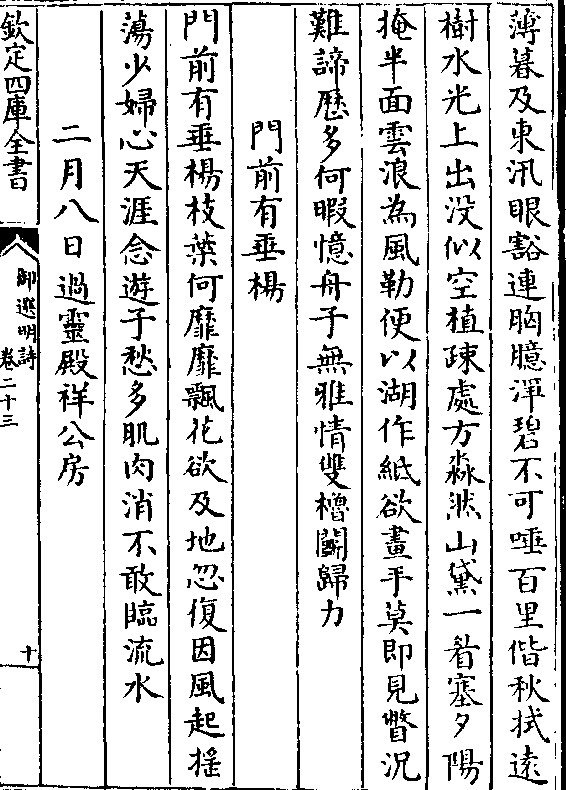 薄暮及東汛眼豁連胸臆渾碧不可唾百里偕秋拭遠
樹水光上出没似空植疎處方淼然山黛一眉塞夕陽
掩半面雲浪為風勒便以湖作紙欲畫手莫即見瞥況
難諦歴多何暇憶舟子無雅情雙櫓鬬歸力
門前有垂楊
門前有垂楊枝葉何靡靡飄花欲及地忽復因風起摇
蕩少婦心天涯念遊子愁多肌肉消不敢臨流水
二月八日過靈殿祥公房
欽定四庫全書
御選明詩
卷二十三
十